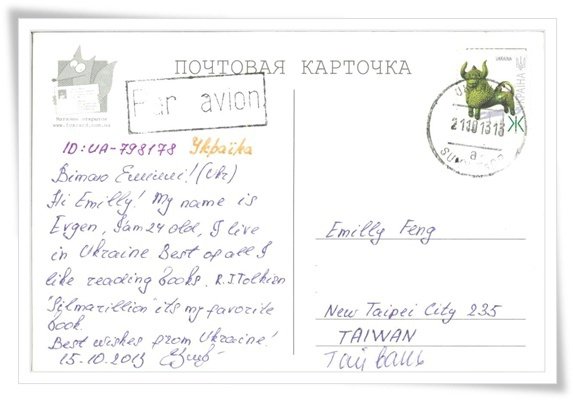 ПОЧТОВАЯ КАРТОЧКА
Магазин открыток
Par avion
UKRAINA
УКРАЇНА
Ж
211013 13
a
ID: UA-798178 Україна
Вітаю Емілі! (Ukr)
Hi Emilly! My name is
Evgen, I am 24 old, I live
in Ukraine Best of all I
like reading books. R.J.Tolkien
"Silmarillion" its my favorite
book.
Best wishes from Ukraine!
15-10-2013
Emilly Feng
New Taipei City 235
TAIWAN
Тайвань